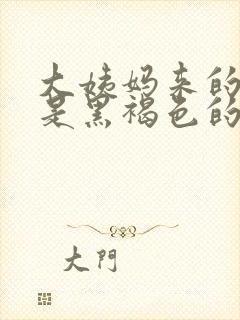 大姨妈来的
是黑褐色的
大門